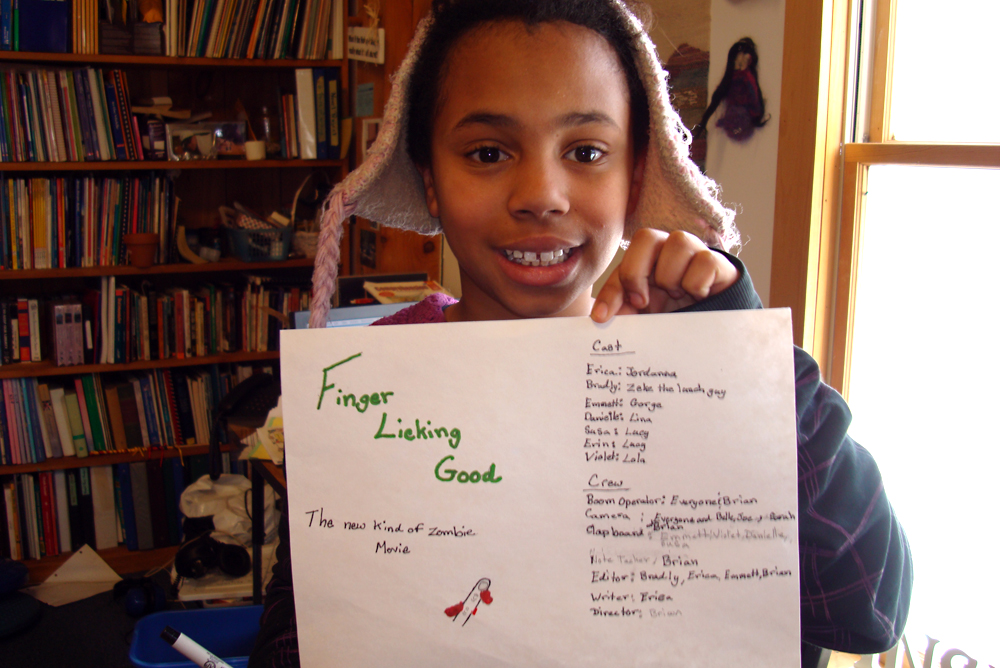 Finger
Licking
Good
The new kind of zombie
Movie
Cast
Erica: Jordanna
Bradly: Zeke the lunch guy
Emmett: Gorge
Danielle: Lina
Sasa: Lucy
Erin: Lucy
Violet: Lola
Crew
Boom Operator: Everyone/Brian
Camera: Everyone and
Clapboard: Brian
Emmett, Violet, Danielle,
Sasa
Note Tacker/ Brian
Editor: Bradly, Erica, Emmett, Brian
Writer: Erica
Director: Brian